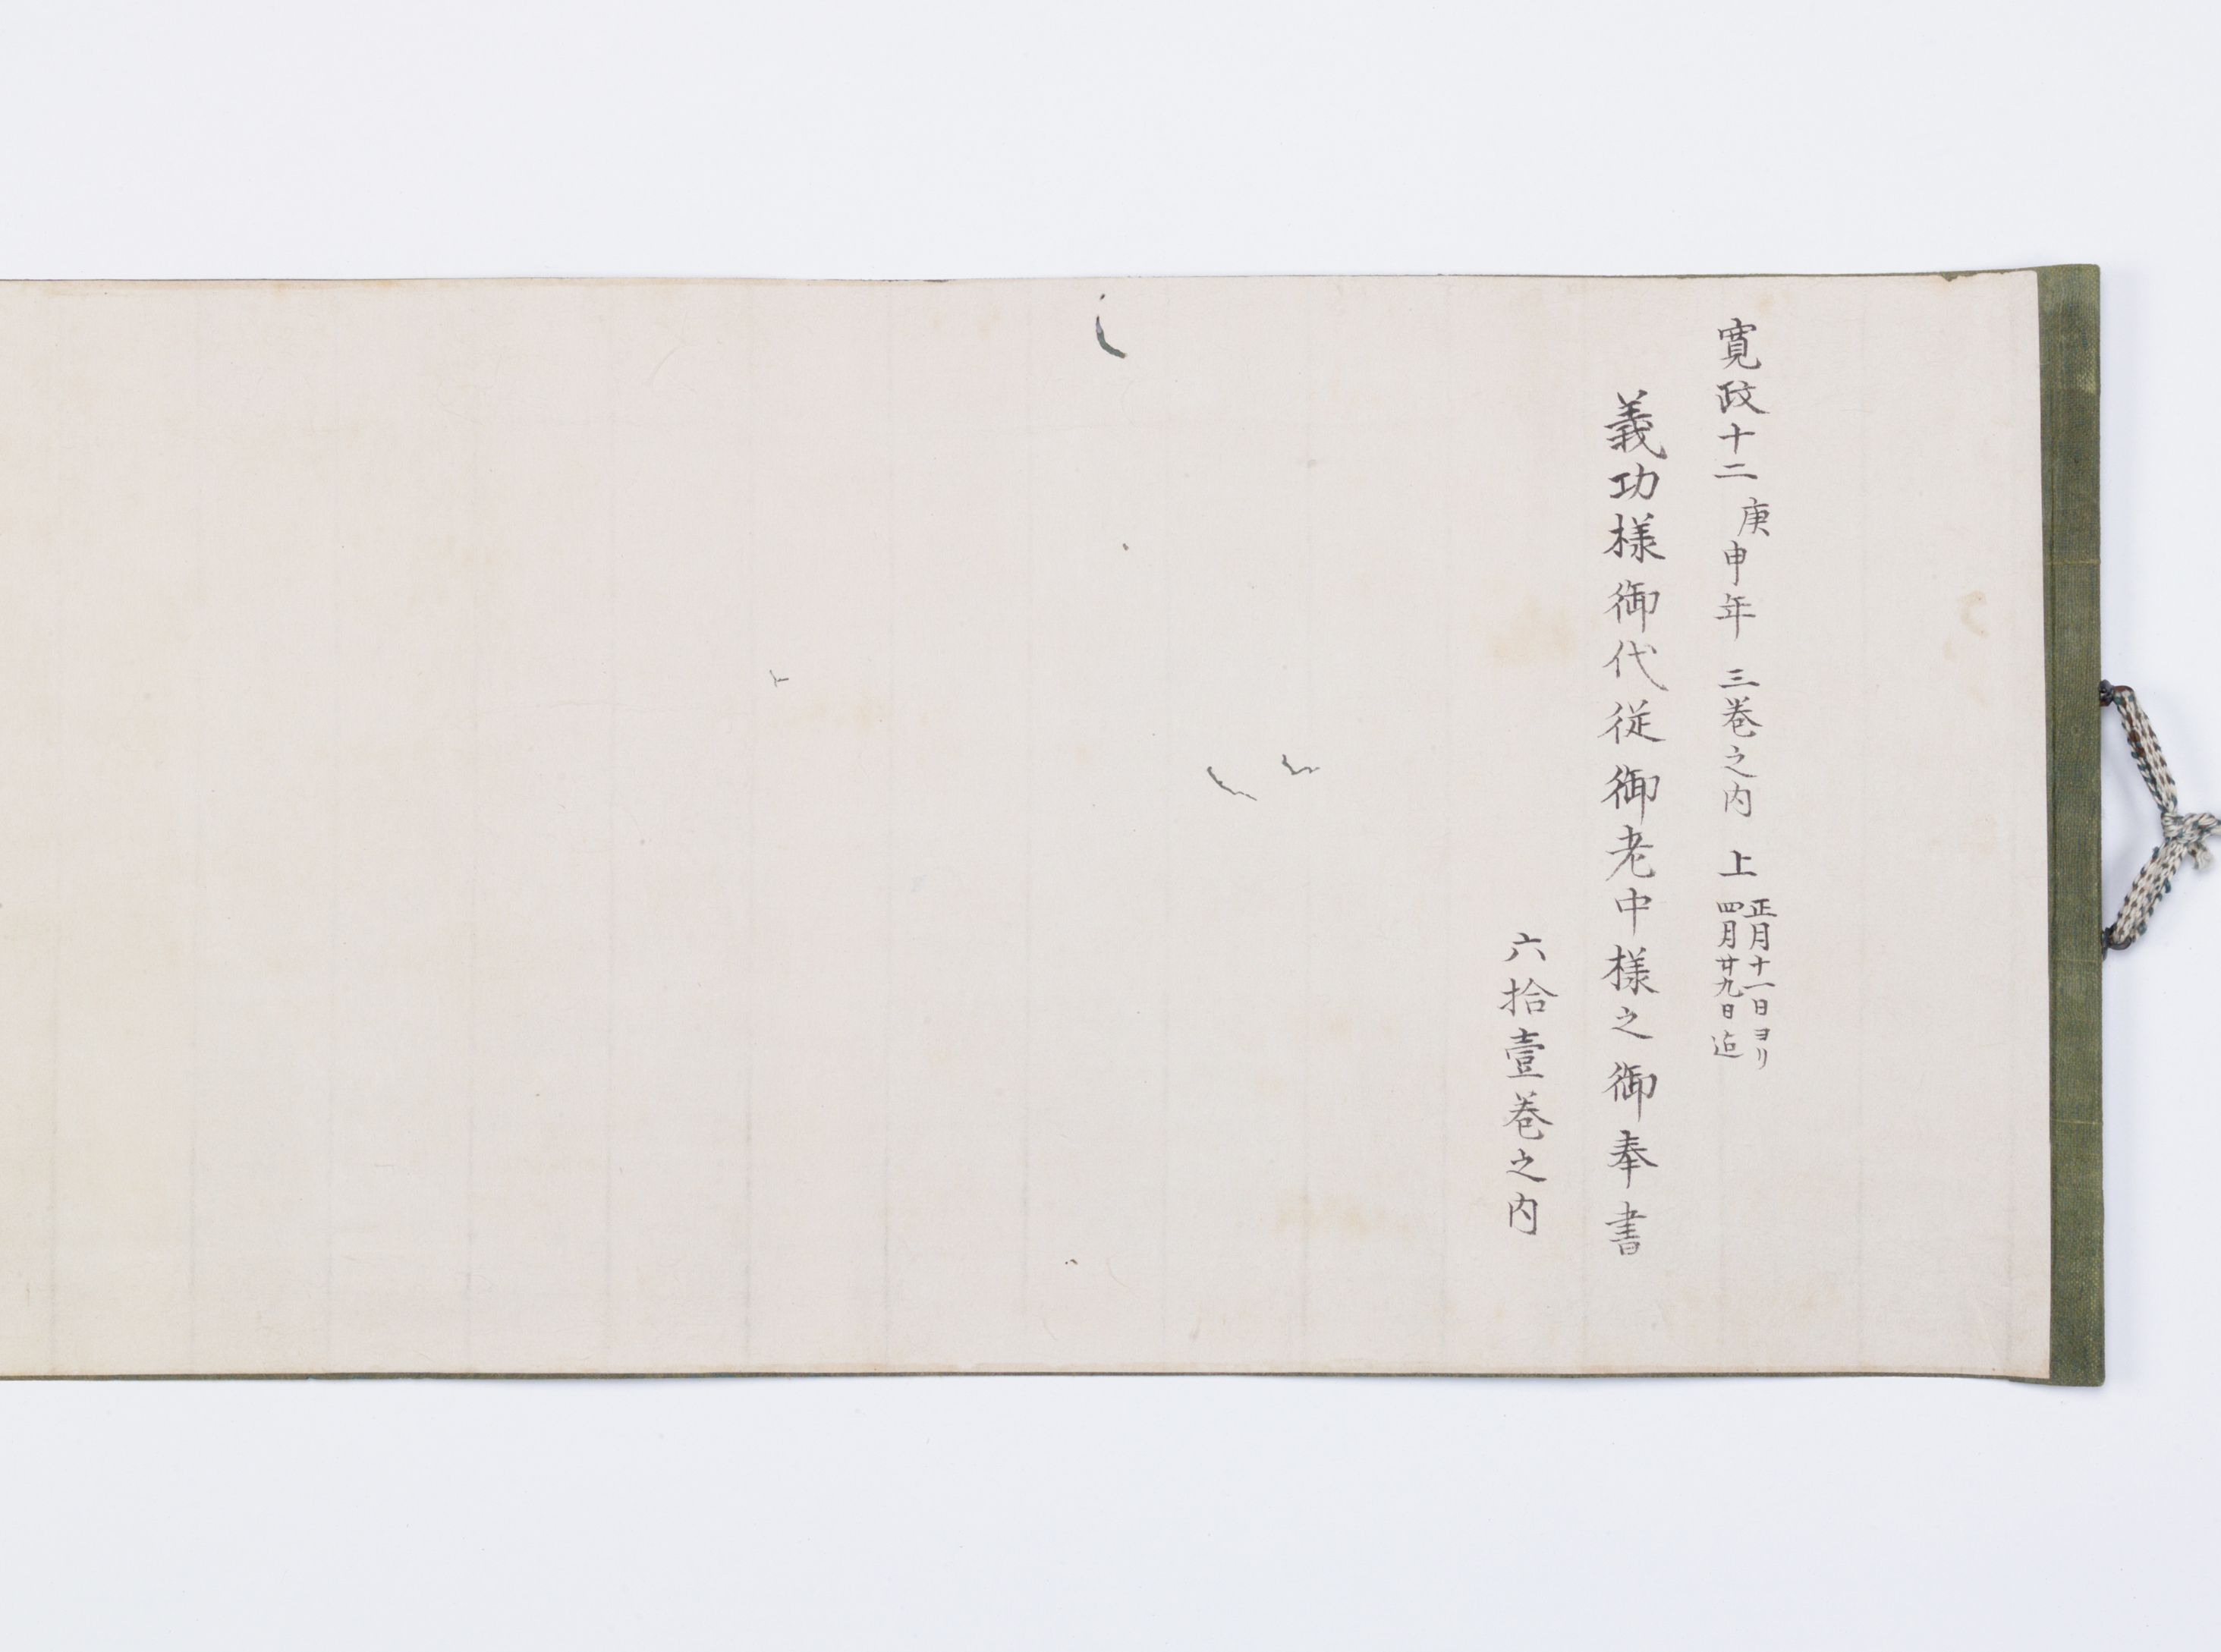 寛政十二庚申年 三巻之内 上 正月十一日ヨリ
四月廿九日迄
義功様御代従御老中様之御奉書
六拾壹巻之内